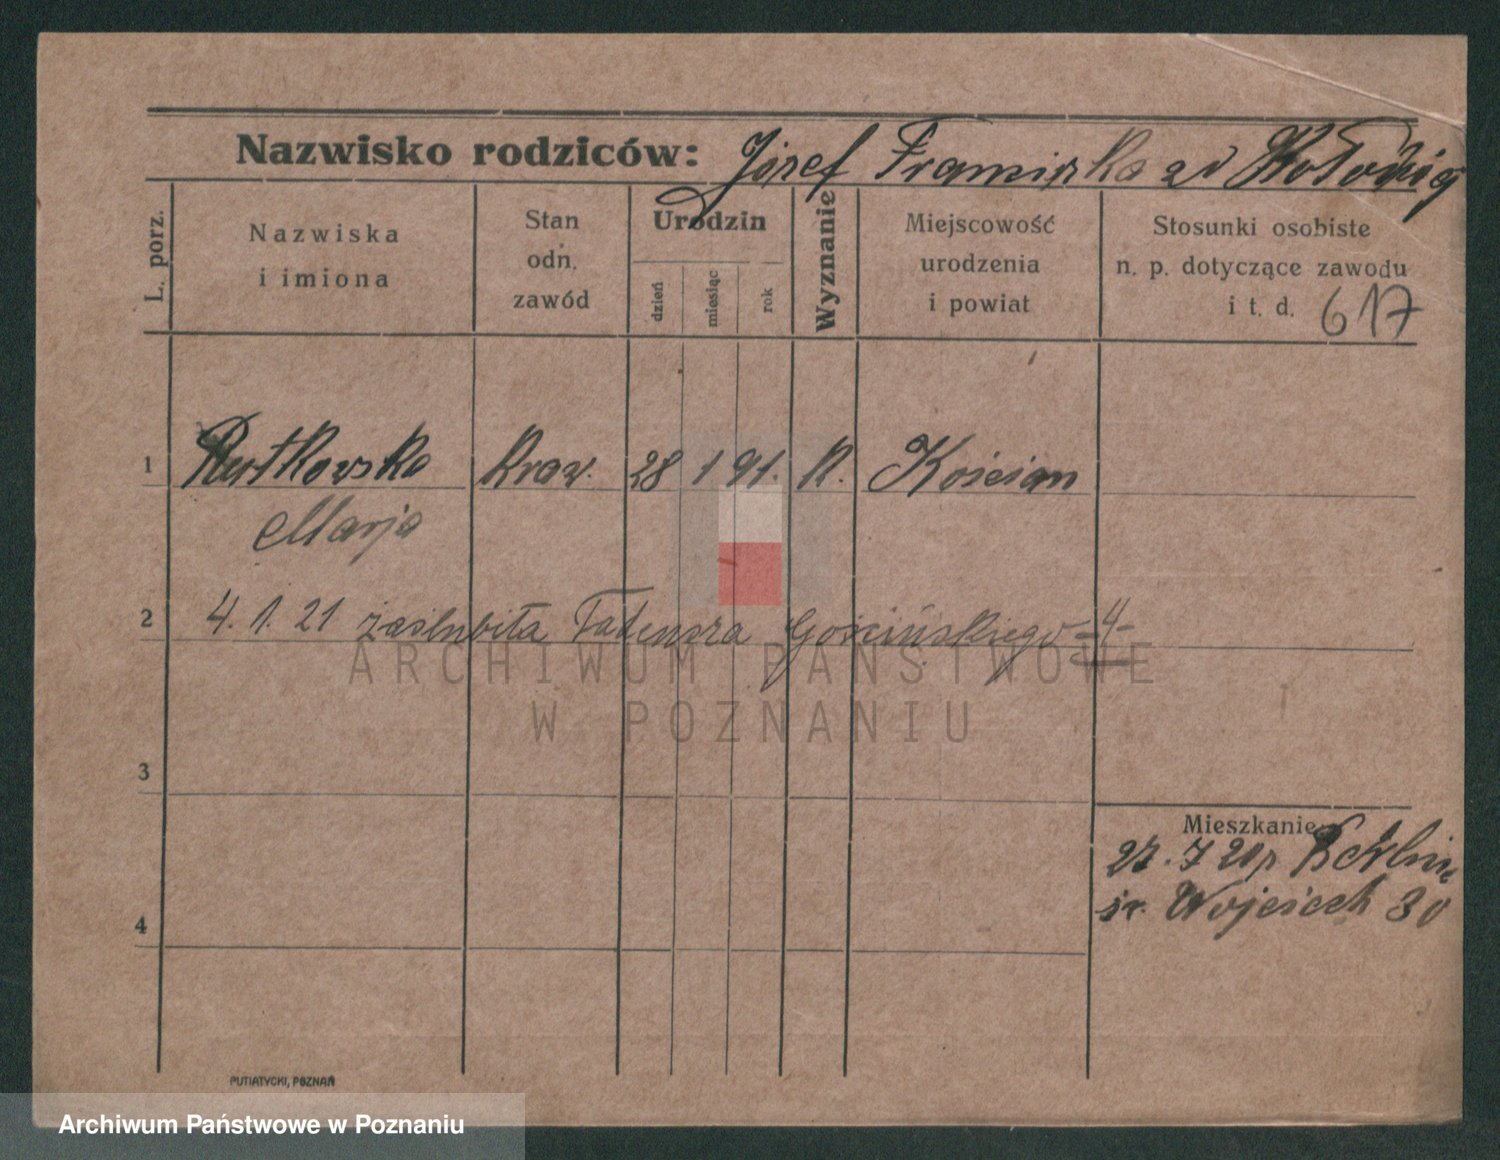 Nazwisko rodziców: Józef Franciszka
L. porz.
Nazwiska
i imiona
Stan
odn.
zawód
Urodzin
dzień
miesiąc
rok
Wyznanie
Miejscowość
urodzenia
i powiat
Stosunki osobiste
n. p. dotyczące zawodu
i t. d. 617
1 Rutkowska Kraw. 28 1 91. K. Kościan
Marja
2 4. 1. 21 zaślubiła Tadeusza Gościńskiego -4-
ARCHIWUM PAŃSTWOWE
W POZNANIU
3
Mieszkanie
4 św. Wojciech 30
PUTIATYCKI, POZNAŃ
Archiwum Państwowe w Poznaniu